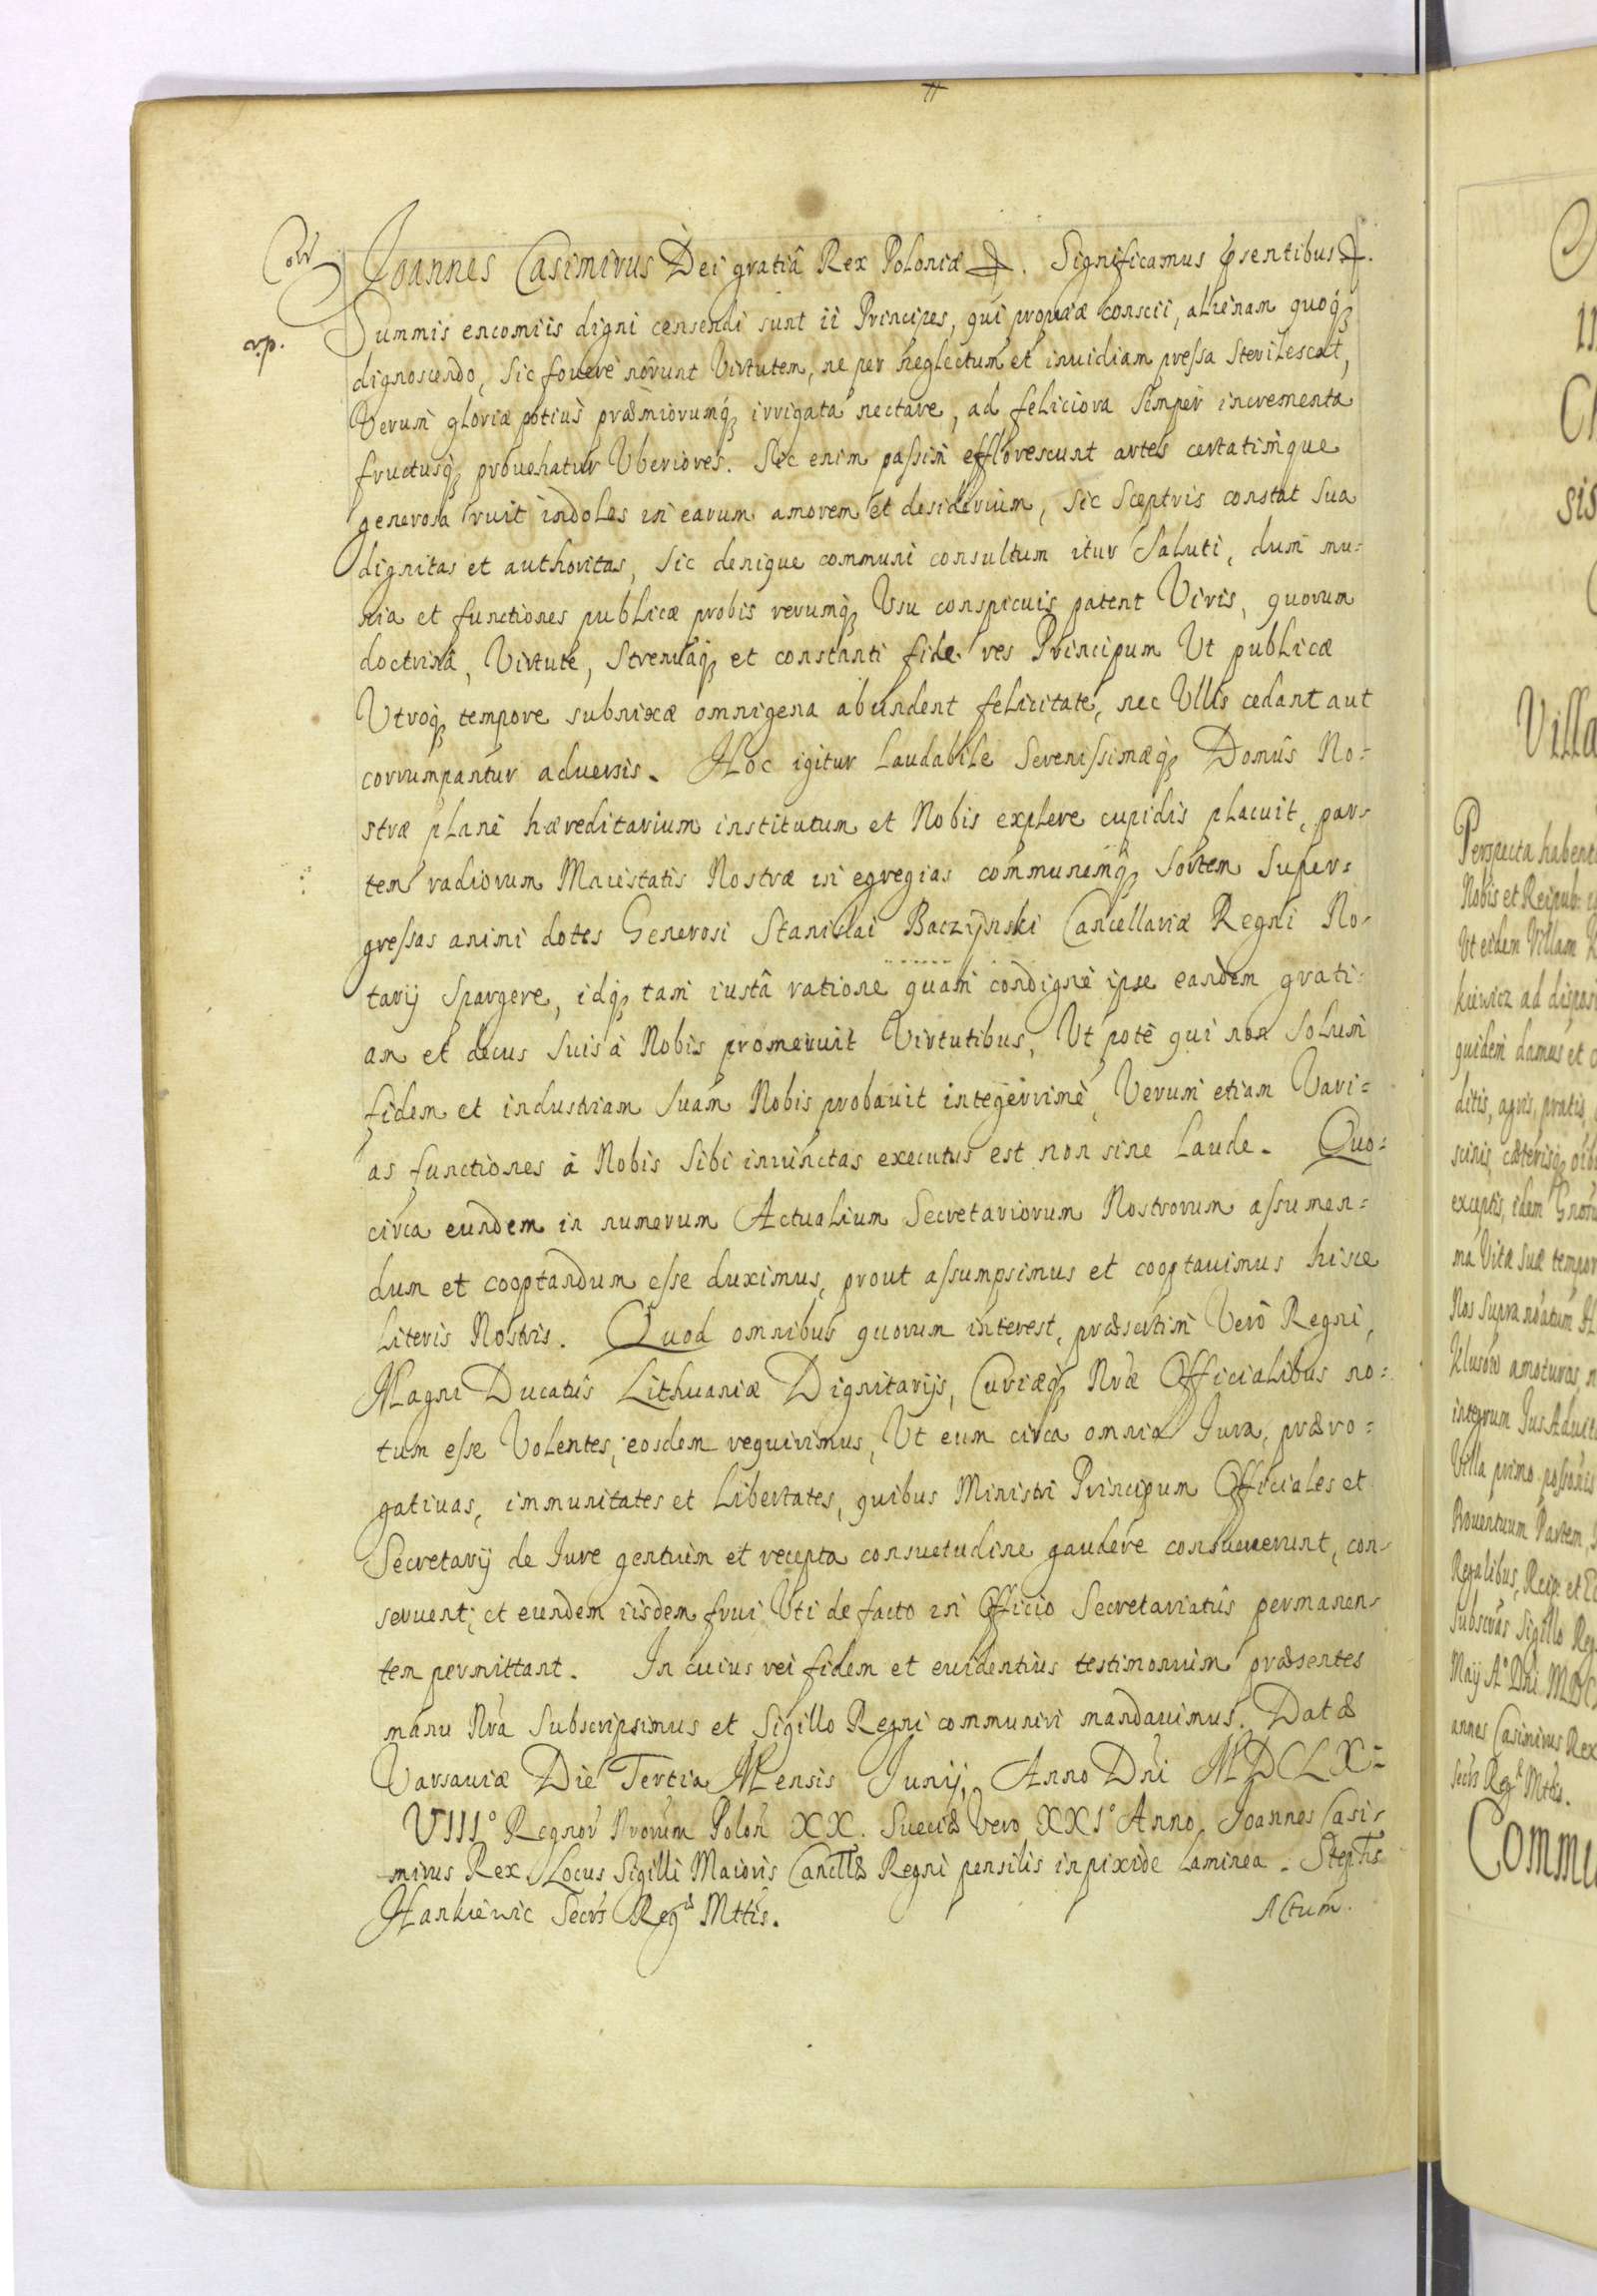 Joannes Casimirus Dei gratiâ Rex Poloniæ. Significamus pntsentibus
Summis encomiis digni censendi sunt ii Principes, qui propriæ conscii, alienam quoq;
dignoscendo, sic fovere nôrunt Virtutem, ne per neglectum et inuidiam pressa sterilescat,
Verum gloriæ potius præmiorumq; irrigata nectare, ad feliciora semper incrementa
fructusq; prouehatur Vberiores. Sic enim passim efflorescunt artes certatimque
generosa ruit indoles in earum amorem et desiderium, sic Sceptris constat sua
dignitas et authoritas, sic denique communi consultum itur Saluti, dum mu-
nia et functiones publicæ probis rerumq; Vsu conspicuis patent Viris, quorum
doctrinâ, Virtute, strenuaq; et constanti fide res Principum Ut publicæ
Utroq; tempore subnixæ omnigena abundent felicitate, nec Ullis cedant aut
corrumpantur aduersis. Hoc igitur laudabile Serenissimæq; Domûs No-
stræ planè hæreditarium institutum et Nobis explere cupidis placuit, par-
tem radiorum Maiestatis Nostræ in egregias communemq; Sortem super-
gressas animi dotes Generosi Stanislai Baczynski Cancellariæ Regni No-
tarij Spargere, idq; tam iustâ ratione quam condignè ipse eandem grati-
am et decus suis à Nobis promeruit Virtutibus, Ut potè qui non solum
fidem et industriam Suam Nobis probauit integerrimè, Verum etiam Vari=
as functiones à Nobis Sibi iniunctas executus est non sine laude. Quo=
circa eundem in numerum Actualium Secretariorum Nostrorum assumen=
dum et cooptandum esse duximus, prout assumpsimus et cooptauimus hisce
Literis Nostris. Quod omnibus quorum interest, præsertim Verò Regni,
Magni Ducatus Lithuaniæ Dignitarijs, Curiæq; Nræ Officialibus no=
tum esse Volentes, eosdem requirimus, Ut eum circa omnia Jura, præro=
gatiuas, immunitates et Libertates, quibus Ministri Principum Officiales et
Secretarij de Jure gentium et recepta consuetudine gaudere consueuerunt, con-
seruent, et eundem iisdem frui Uti de facto in Officio Secretariatûs permanen-
tem permittant. In cuius rei fidem et euidentius testimonium præsentes
manu Nrâ Subscripsimus et Sigillo Regni communiri mandauimus. Datæ
Varsauiæ Die Tertia Mensis Junij, Anno Dni MDCLX=
VIII° Regnor Nrorum Polon XX. Sueciæ Vero XXI° Anno. Joannes Casi-
mirus Rex. Locus Sigilli Maioris Cancllæ Regni pensilis in pixide laminea. Stephs
Hankiewic Secrs Regæ Mttis.
Actum.
Perspecta habent
Nobis et Reipub:
Ut eidem Villam
kiewicz ad dispos
quidem damus et
ditis, agris, pratis,
scinis, cæterisq; oib
exceptis, idem Gnos
ma Vitæ suæ tempor
Klusow amoturos, n
integrum Jus Aduit
Villa primo
Prouentuum Partem,
Regalibus, Reip: et
Subscras Sigillo Reg
Maij A° Dni MDC
annes Casimirus Rex
Secrs Regæ Mttis.
Villa
Commu